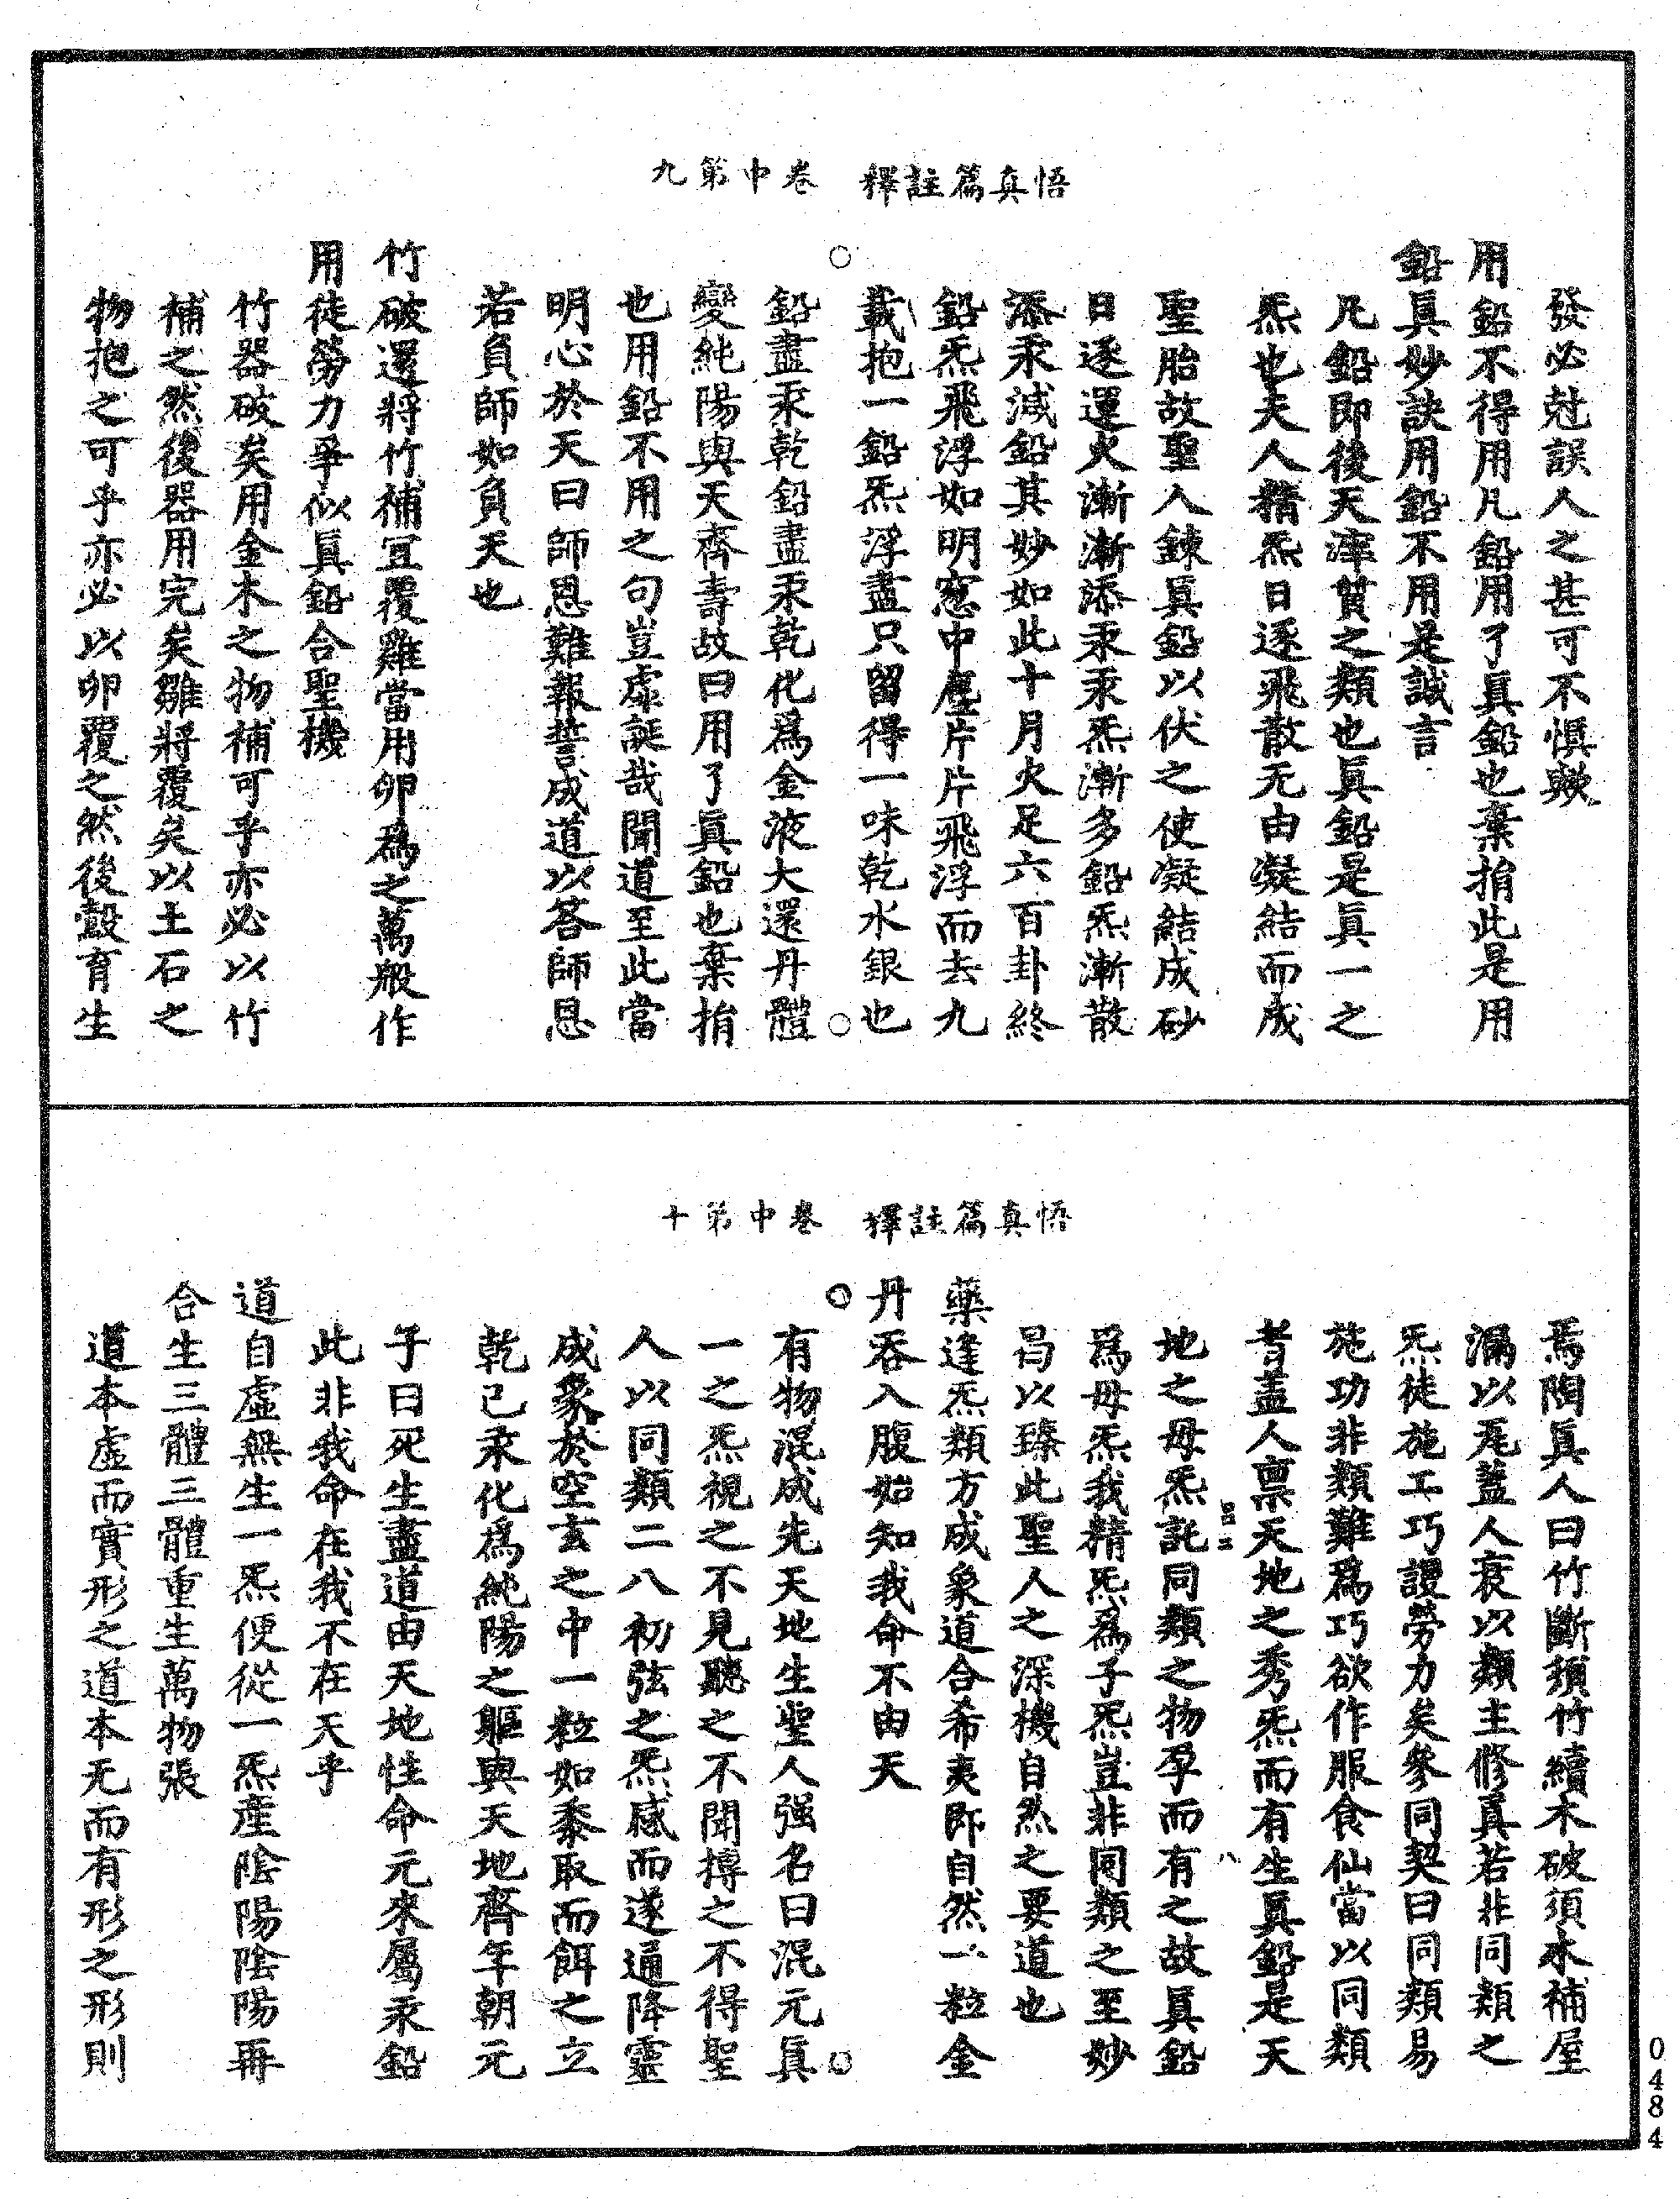 悟真篇註釋 卷中第九
發必尅誤人之甚可不慎歟
用鉛不得用凡鉛用了真鉛也棄捐此是用
鉛真妙訣用鉛不用是誠言
凡鉛即後天滓質之類也真鉛是真一之
炁也夫人精炁日逐飛散无由凝結而成
聖胎故聖人鍊真鉛以伏之使凝結成砂
日逐運火漸漸添汞汞炁漸多鉛炁漸散
添汞減鉛其妙如此十月火足六百卦終
鉛炁飛浮如明窓中塵片片飛浮而去九
載抱一鉛炁浮盡只留得一味乾水銀也
鉛盡汞乾鉛盡汞乾化為金液大還丹體
變純陽與天齊壽故曰用了真鉛也棄捐
也用鉛不用之句豈虛誕哉聞道至此當
明心於天曰師恩難報誓成道以答師恩
若負師如負天也
竹破還將竹補冝覆雞當用卵為之萬般作
用徒勞力爭似真鉛合聖機
竹器破矣用金木之物補可乎亦必以竹
補之然後器用完矣雛將覆矣以土石之
物抱之可乎亦必以卵覆之然後㲉育生
悟真篇註釋 卷中第十
焉陶真人曰竹斷須竹續木破須木補屋
漏以𤬪蓋人衰以類主修真若非同類之
炁徒施工巧謾勞力矣參同契曰同類易
施功非類難為巧欲作服食仙當以同類
者蓋人禀天地之秀炁而有生真鉛是天
地之母炁託同類之物孕而有之故真鉛
為母炁我精炁為子炁豈非同類之至妙
曷以臻此聖人之深機自然之要道也
藥逢炁類方成象道合希夷即自然一粒金
丹吞入腹始知我命不由天
有物混成先天地生聖人强名曰混元真
一之炁視之不見聽之不聞摶之不得聖
人以同類二八初弦之炁感而遂通降靈
成象於空玄之中一粒如黍取而餌之立
乾己汞化為純陽之軀與天地齊年朝元
子曰死生盡道由天地性命元來屬汞鉛
此非我命在我不在天乎
道自虛無生一炁便從一炁產陰陽陰陽再
合生三體三體重生萬物張
道本虛而實形之道本无而有形之形則
四三
八
0484